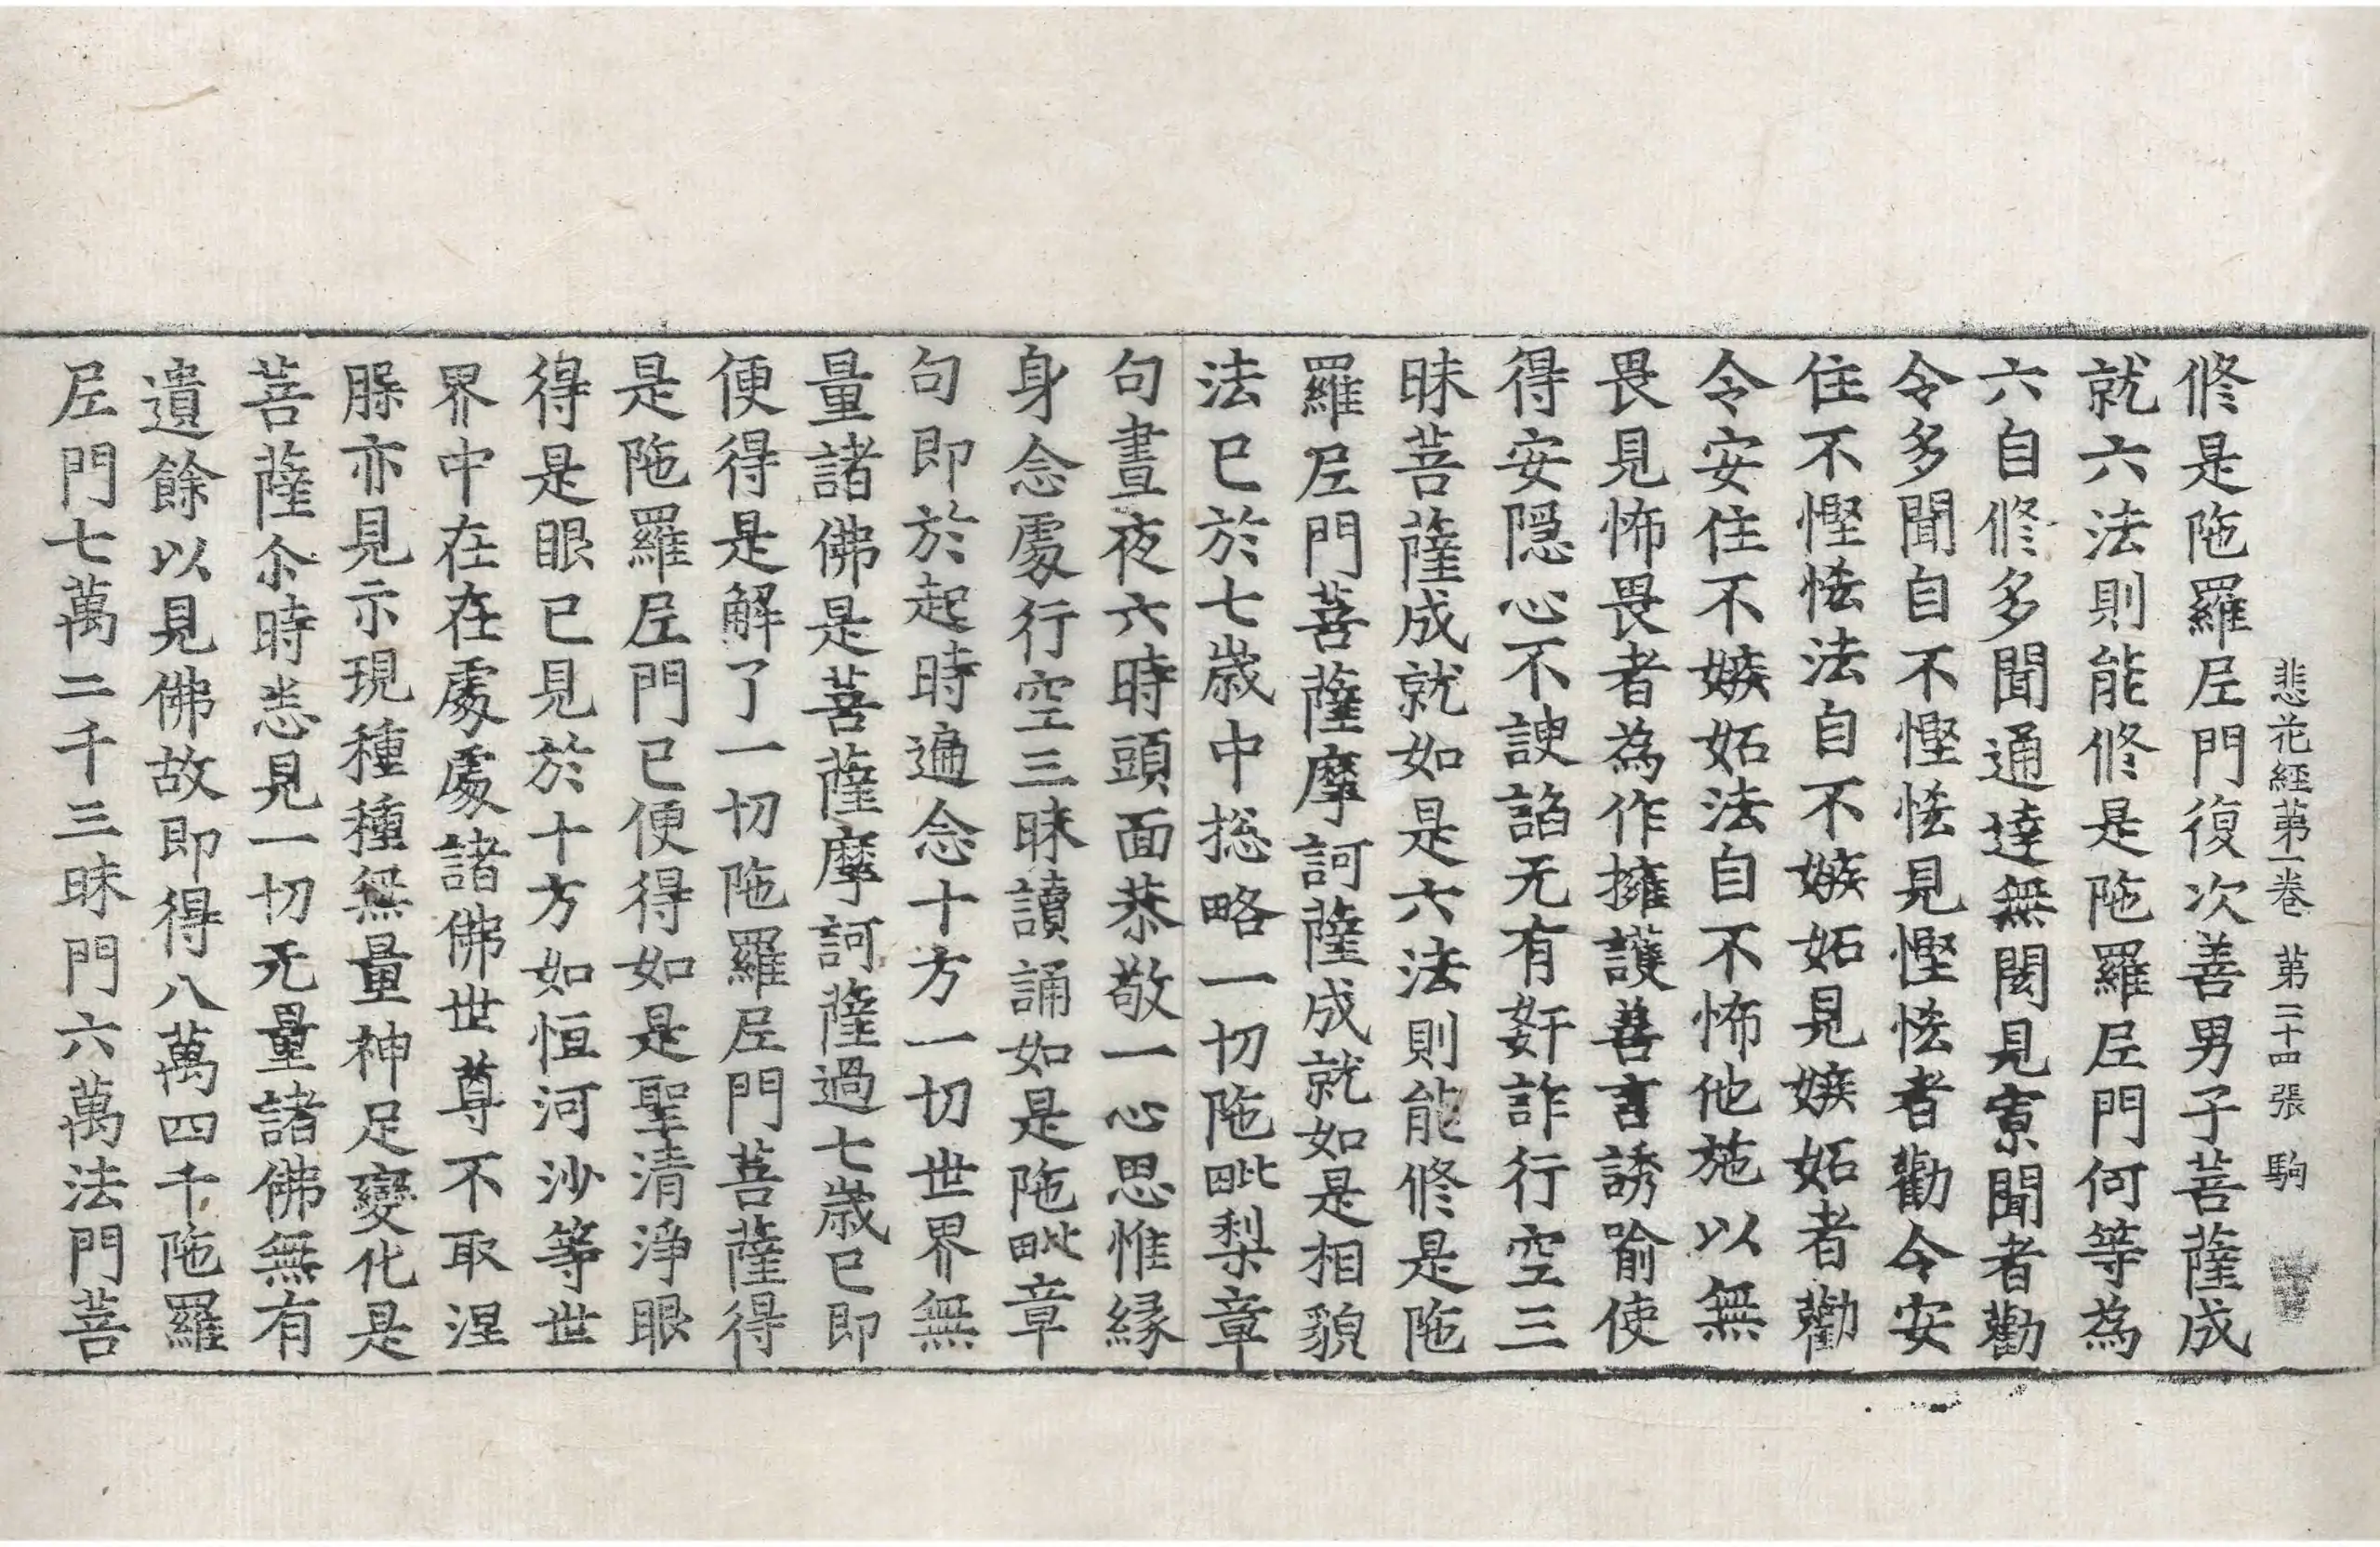 悲花經第一卷 第二十四張 駒
修是陁羅尼門復次善男子菩薩成
就六法則能修是陁羅尼門何等為
六自修多聞通達無閡見寡聞者勸
令多聞自不慳悋見慳悋者勸令安
住不慳悋法自不嫉妬見嫉妬者勸
令安住不嫉妬法自不怖他施以無
畏見怖畏者為作擁護善言誘喻使
得安隱心不諛諂无有姧詐行空三
昧菩薩成就如是六法則能修是陁
羅尼門菩薩摩訶薩成就如是相貌
法已於七歲中揔略一切陁毗梨章
句晝夜六時頭面恭敬一心思惟緣
身念處行空三昧讀誦如是陁毗章
句即於起時遍念十方一切世界無
量諸佛是菩薩摩訶薩過七歲已即
便得是解了一切陁羅尼門菩薩得
是陁羅尼門已便得如是聖清淨眼
得是眼已見於十方如恒河沙等世
界中在在處處諸佛世尊不取涅
槃亦見示現種種無量神足變化是
菩薩尒時悉見一切无量諸佛無有
遺餘以見佛故即得八萬四千陁羅
尼門七萬二千三昧門六萬法門菩